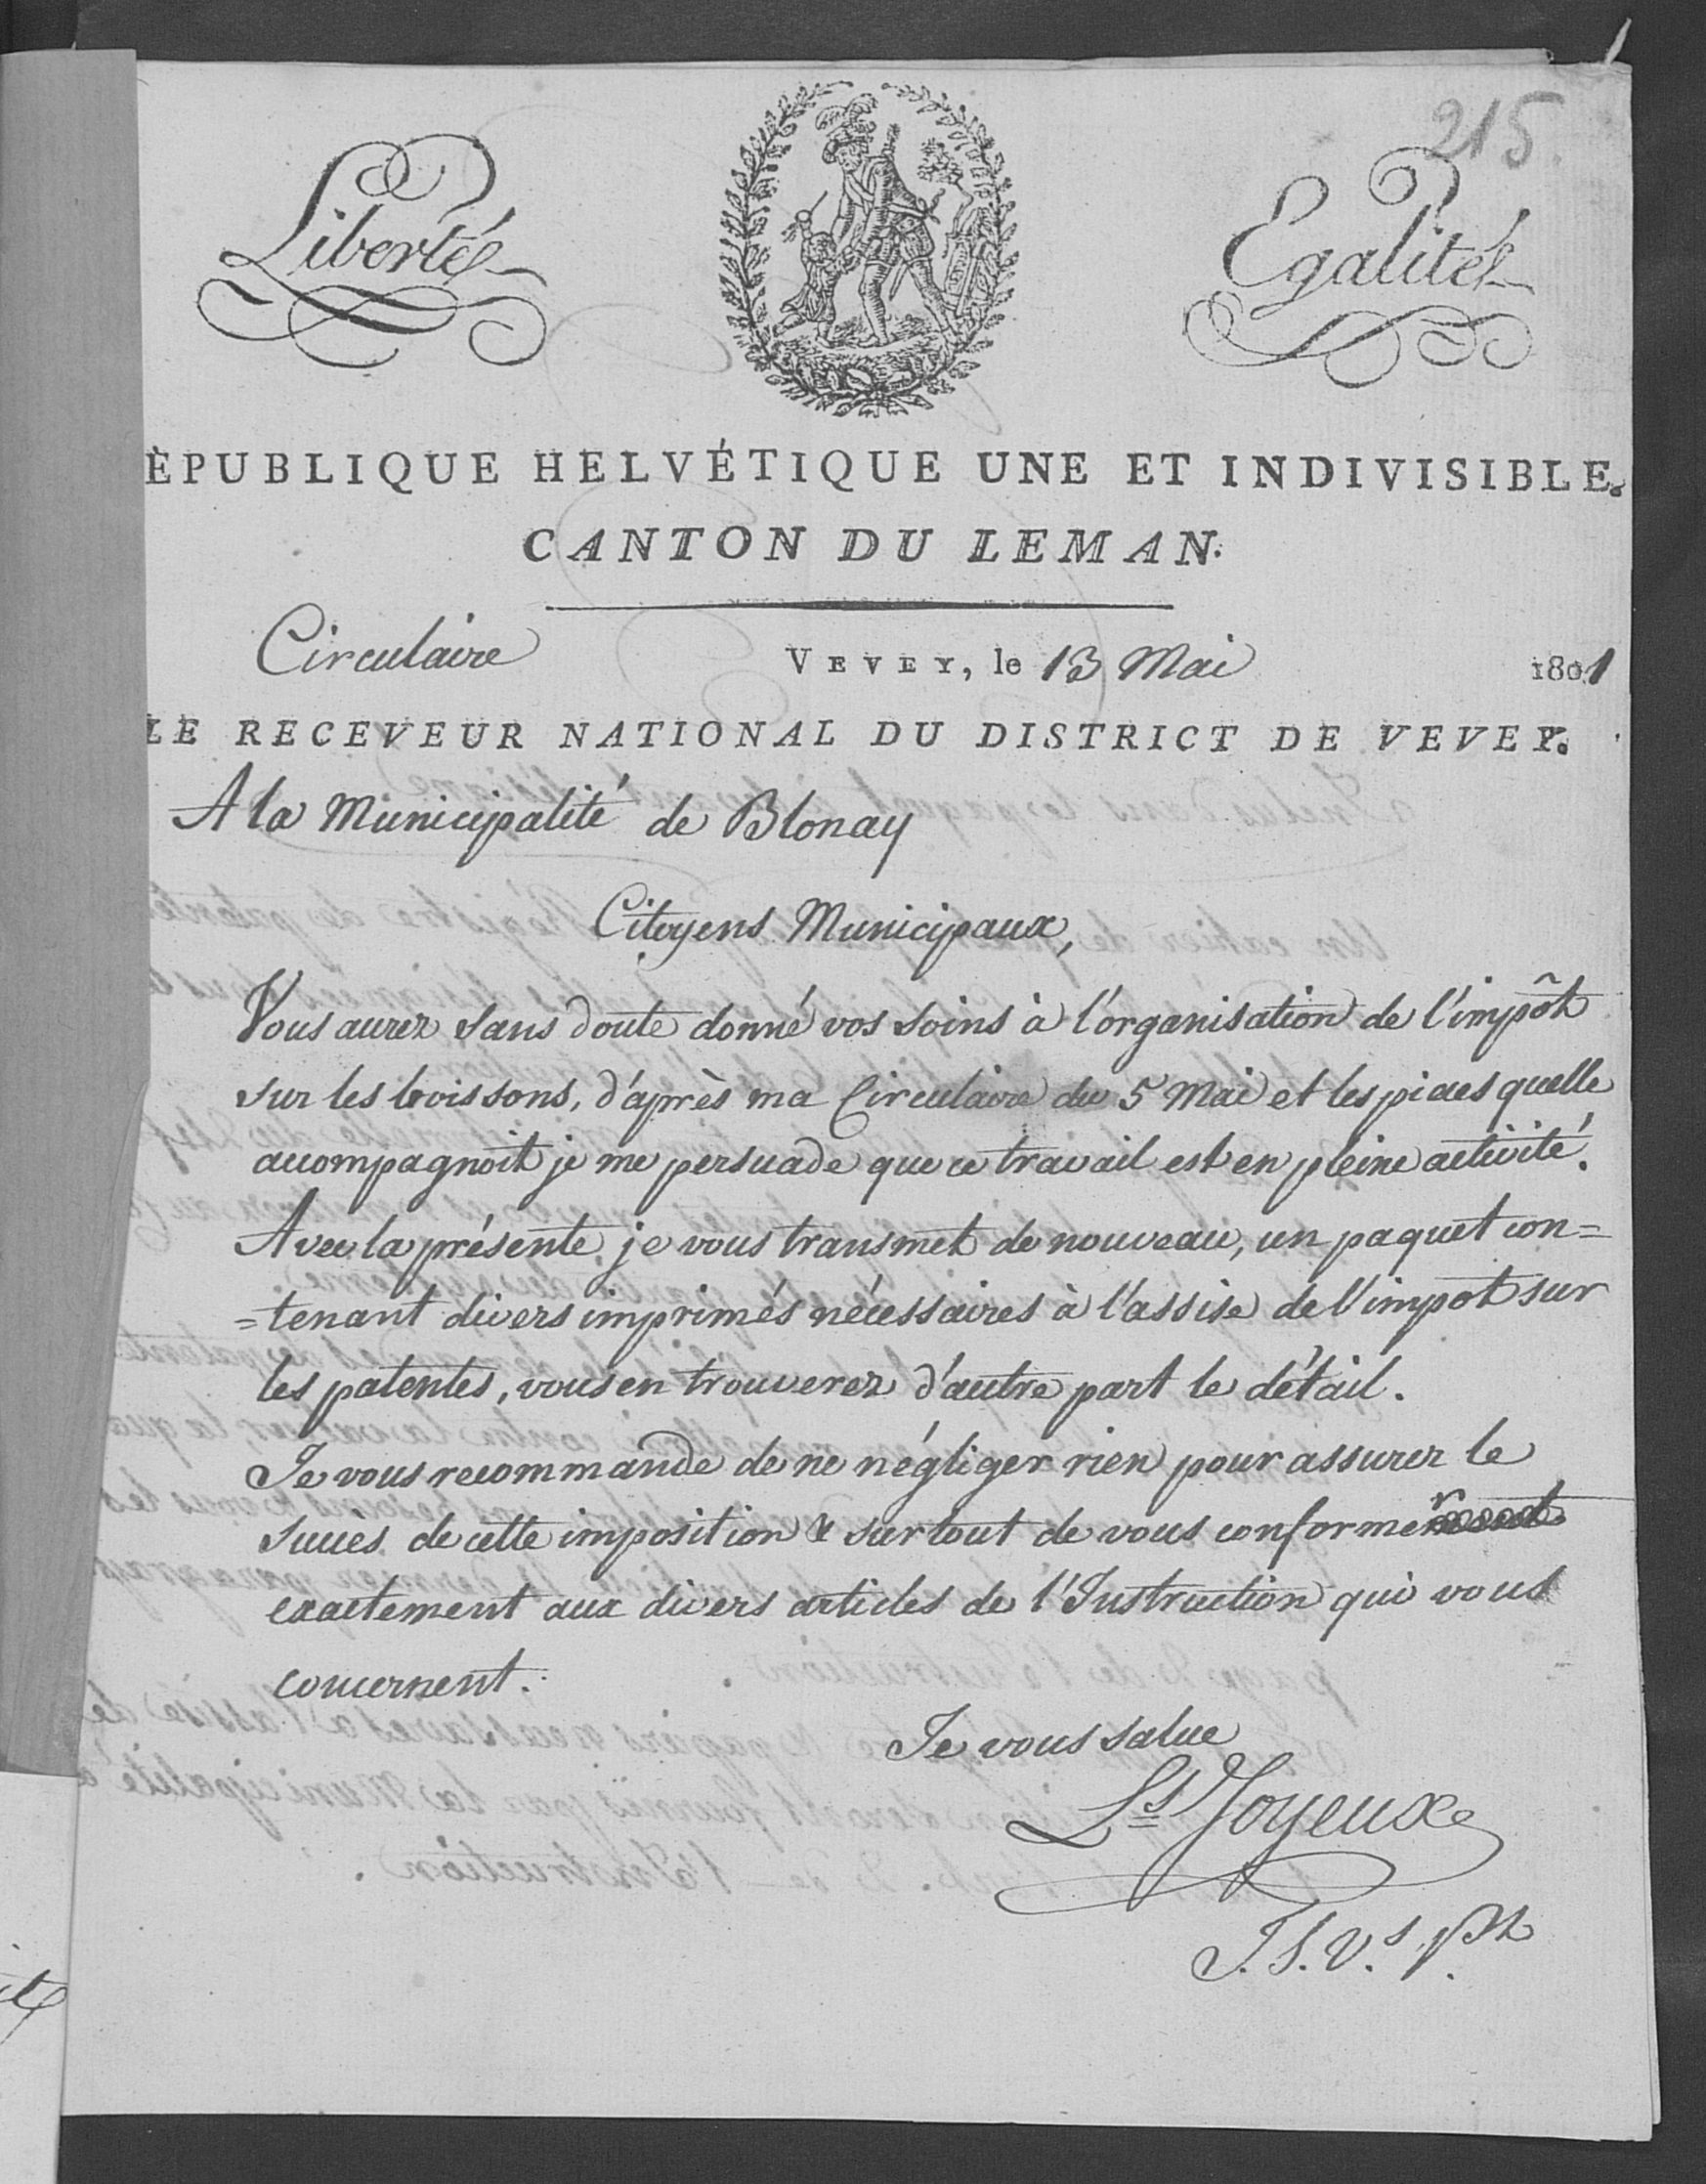 215.
Liberté
Egalité
ÈPUBLIQUE HELVÉTIQUE UNE ET INDIVISIBLE.
CANTON DU LEMAN.
Circulaire VEVEY, le 13 Mai 1801
LE RECEVEUR NATIONAL DU DISTRICT DE VEVEY.
A la Municipalité de Blonay
Citoyens Municipaux,
Vous aurez sans doute donné vos soins à l'organisation de l'impôt
sur les boissons, d'après ma Circulaire du 5 Mai et les pieces quelle
accompagnoit je me persuade que ce travail est en pleine activité.
Avec la présente, je vous transmet de nouveau, un paquet con=
=tenant divers imprimés nécessaires à l'assise de l'impot sur
les patentes, vous en trouverez d'autre part le détail.
Je vous recommande de ne négliger rien pour assurer le
succès de cette imposition & surtout de vous conformer
exactement aux divers articles de l'Instruction qui vous
concernent.
Je vous salue
Ls Joyeux
T. S. V. s. pt